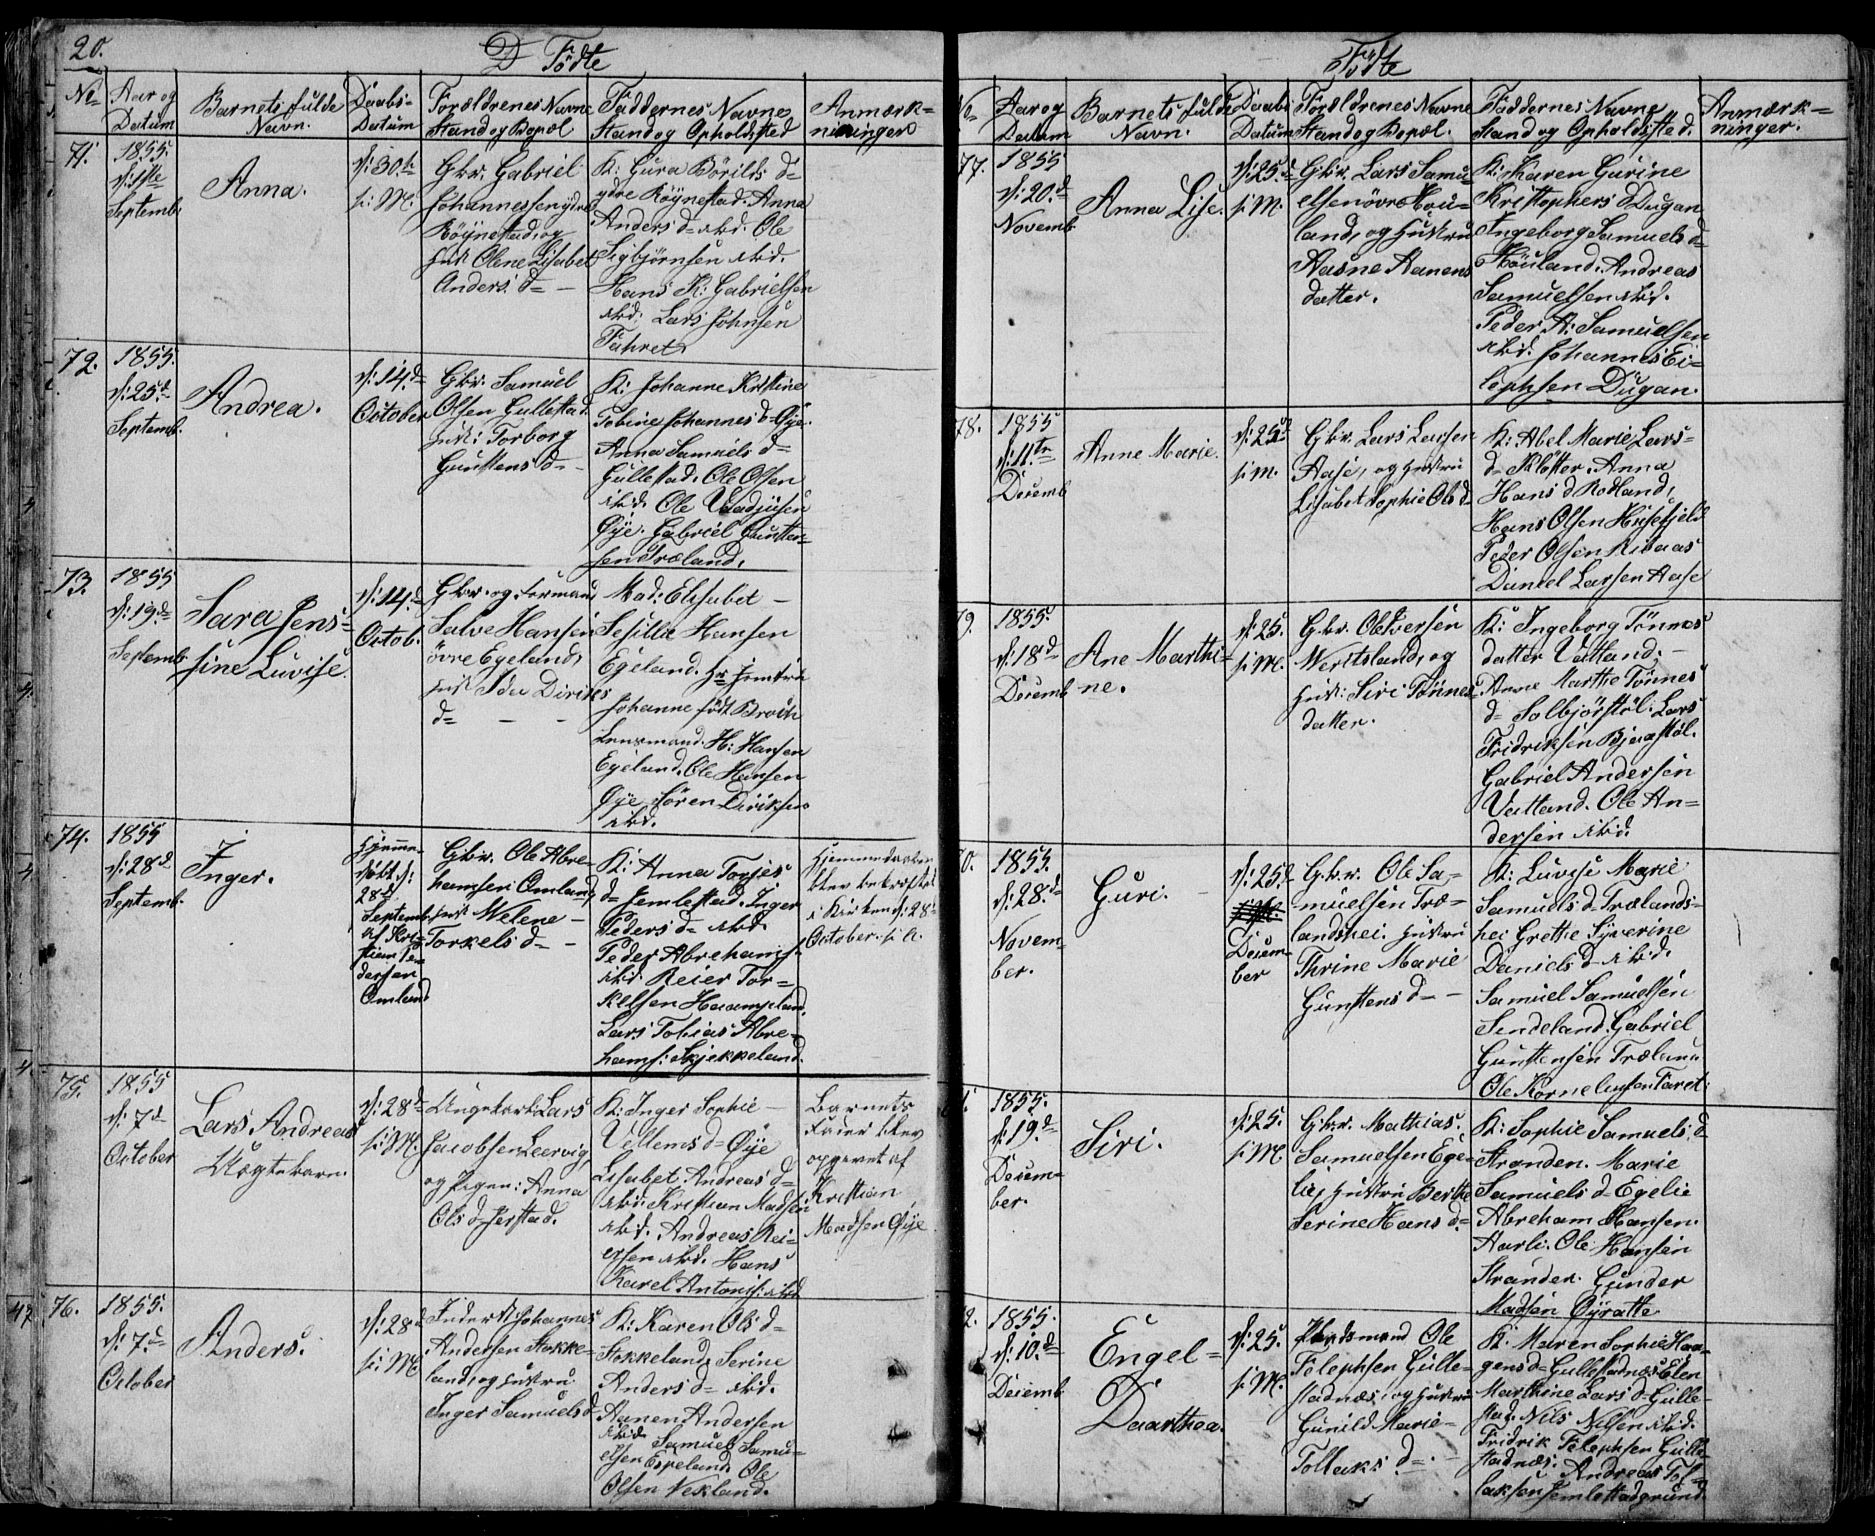 20.
D Födte
No Aar og Datum Barnets fulde Navn. Daabs-Datum Forældrenes Navne Stand og Bopæl Faddernes Navne Stand og Opholdsted Anmærk=ninger
71. 1855. d: 1ste Septemb.
Anna.
d: 30te s: M.
Gbr. Gabriel
Johannessen ydre
Röynestad, og
Hust. Olene Lisabet
Anders d= -
K: Gura Börilds d=
ydre Röynestad. Anna
Anders d= ibid. Ole
Sigbjörnsen ibid.
Hans K: Gabrielsen
ibid. Lars Johnsen
Fahret.
72. 1855. d: 25d Septemb.
Andrea.
d: 14.d October
Gbr. Samuel
Olsen Gullestad.
Hust: Torborg
Gunstens d=
K: Johanne Kristine
Tobine Johannes d= Öye.
Anna Samuels d=
Gullestad. Ole Olsen
ibid. Ole
Öye. Gabriel Gunsten=
sen Træland.
73. 1855 d: 19.d Septemb.
Sara Jens=
sine Luvise.
d: 14.d Octob.
Gbr. og Formand
Salve Hansen
övre Egeland,
Hust Ida Diriks
d= - -
Mad: Elisabet -
Sesilie Hansen
Egeland. Hr
Johanne födt Broch
Lensmand. H: Hansen
Egeland. Ole Hansen
Öye. Sören Diriksen
ibid.
74. 1855 d: 28d Septemb.
Inger.
Hjemme=
döbt d:
28d
Septemb.
af Kri=
stian Pe=
dersen
Omland
Gbr. Ole Abre=
hamsen Omland,
Hust Welene -
Torkels d= -
K: Anna Torjes
d= Jemlestad. Inger
Peders d= ibid.
Peder Abrehams.
ibid. Reier Tor=
kelsen Haampland.
Lars Tobias Abre=
hams: Skjekkeland.
Hjemmedaaben
blev bekræftet
i Kirken d: 28d
October. s: A.
75. 1855 d: 7d October
Lars Andreas
Uægtebarn.
d: 28d s: M.
Ungekarl Lars
Jacobsen Leervig,
og Pigen: Anna
Ols d= Jerstad.
K: Inger Sophie -
Vellems d= Öye
Lisabet Andreas d=
ibid. Kristian Madsen
ibid. Andreas Rei=
ersen ibid. Hans
Karel Antons: ibid
Barnets
Fader blev
opgivet af
Kristian
Madsen Öye
76. 1855. d: 7.d October
Anders.
d: 28d s: M.
Inderst Johannes
Andersen Stokke=
land, og Hustru
Inger Samuels d=
K: Karen Ols d=
Stokkeland. Serine
Anders d= ibid.
Aanen Andersen
ibid. Samuel Samu=
elsen Espeland. Ole
Olsen Vekland.
Födte
No Aar og Datum Barnets fulde Navn. Daabs Datum Forældrenes Navne Stand og Bopæl. Faddernes Navne Stand og Opholdsted. Anmærk=ninger.
77. 1855 d: 20.d Novemb
Anna Lise.
d: 25.d s: M.
Gbr. Lars Samu=
elsen övre Hou=
land, og Hustru
Aasne Aanens
datter.
K: Karen Gurine
Kristophers d Dugan
Ingeborg Samuels d=
Houland. Andreas
Samuelsen ibid.
Peder A: Samuelsen
ibid. Johannes Ei=
lephsen Dugan.
78. 1855 d: 11.te Decemb
Anne Marie.
d: 25d s: M.
Gbr. Lars Larsen
Aase, og Hustru
Lisabet Sophie Ols d.
K: Abel Marie Lars=
d= Klötter. Anna
Hans d Rodland,
Hans Olsen Husefjeld
Peder Olsen
Daniel Larsen Aase
79. 1855. d: 18d Decemb
Ane Marthi=
ne.
d: 25. s: M.
Gbr. Ole Iversen
Weritsland, og
Hust: Siri Tönnes
datter.
K: Ingeborg Tönnes
datter Vatland. -
Anne Marthe Tönnes
d= Solbjörstöl. Lars
Fridriksen Bjerstöl.
Gabriel Andersen
Vatland. Ole An=
dersen ibid.
0. 1855. d: 28.d Novem=ber.
Guri.
d: 25.d Decem=ber
Gbr. Ole Sa=
muelsen Træ=
landshei. Hustru
Thrine Marie
Gunstens d= -
K: Luvise Marie
Samuels d= Trælands=
hei. Grethe Syverine
Daniels d= ibid.
Samuel Samuelsen
Sindeland. Gabriel
Gunstensen Træland
Ole Korneliussen Faret.
1. 1855. d: 19.d Decem=ber.
Siri.
d: 25. s: M
Gbr. Mathias.
Samuelsen Ege=
lie, Hustru Berthe
Serine Hans d=
K: Sophie Samuels d
Stranden. Marie
Samuels d= Egelie
Abreham Hansen
Aarli. Ole Hansen
Stranden. Gunder
Madsen
2. 1855. d: 10.d Decemb
Engel=
Daarthea.
d: 25. s: M.
Plædsmand Ole
Telephsen Gulle=
stadnæs, og Hustru
Gunild Marie=
Tollaks d= -
K: Maren Sophie Haa=
gens d= Gullestadnæs. Elen
Marthine Lars d= Gulle=
stad. Nils Nilsen ibid.
Fridrik Telephsen Gulle=
stadnæs. Andreas Tol=
laksen Jemlestadgrund.